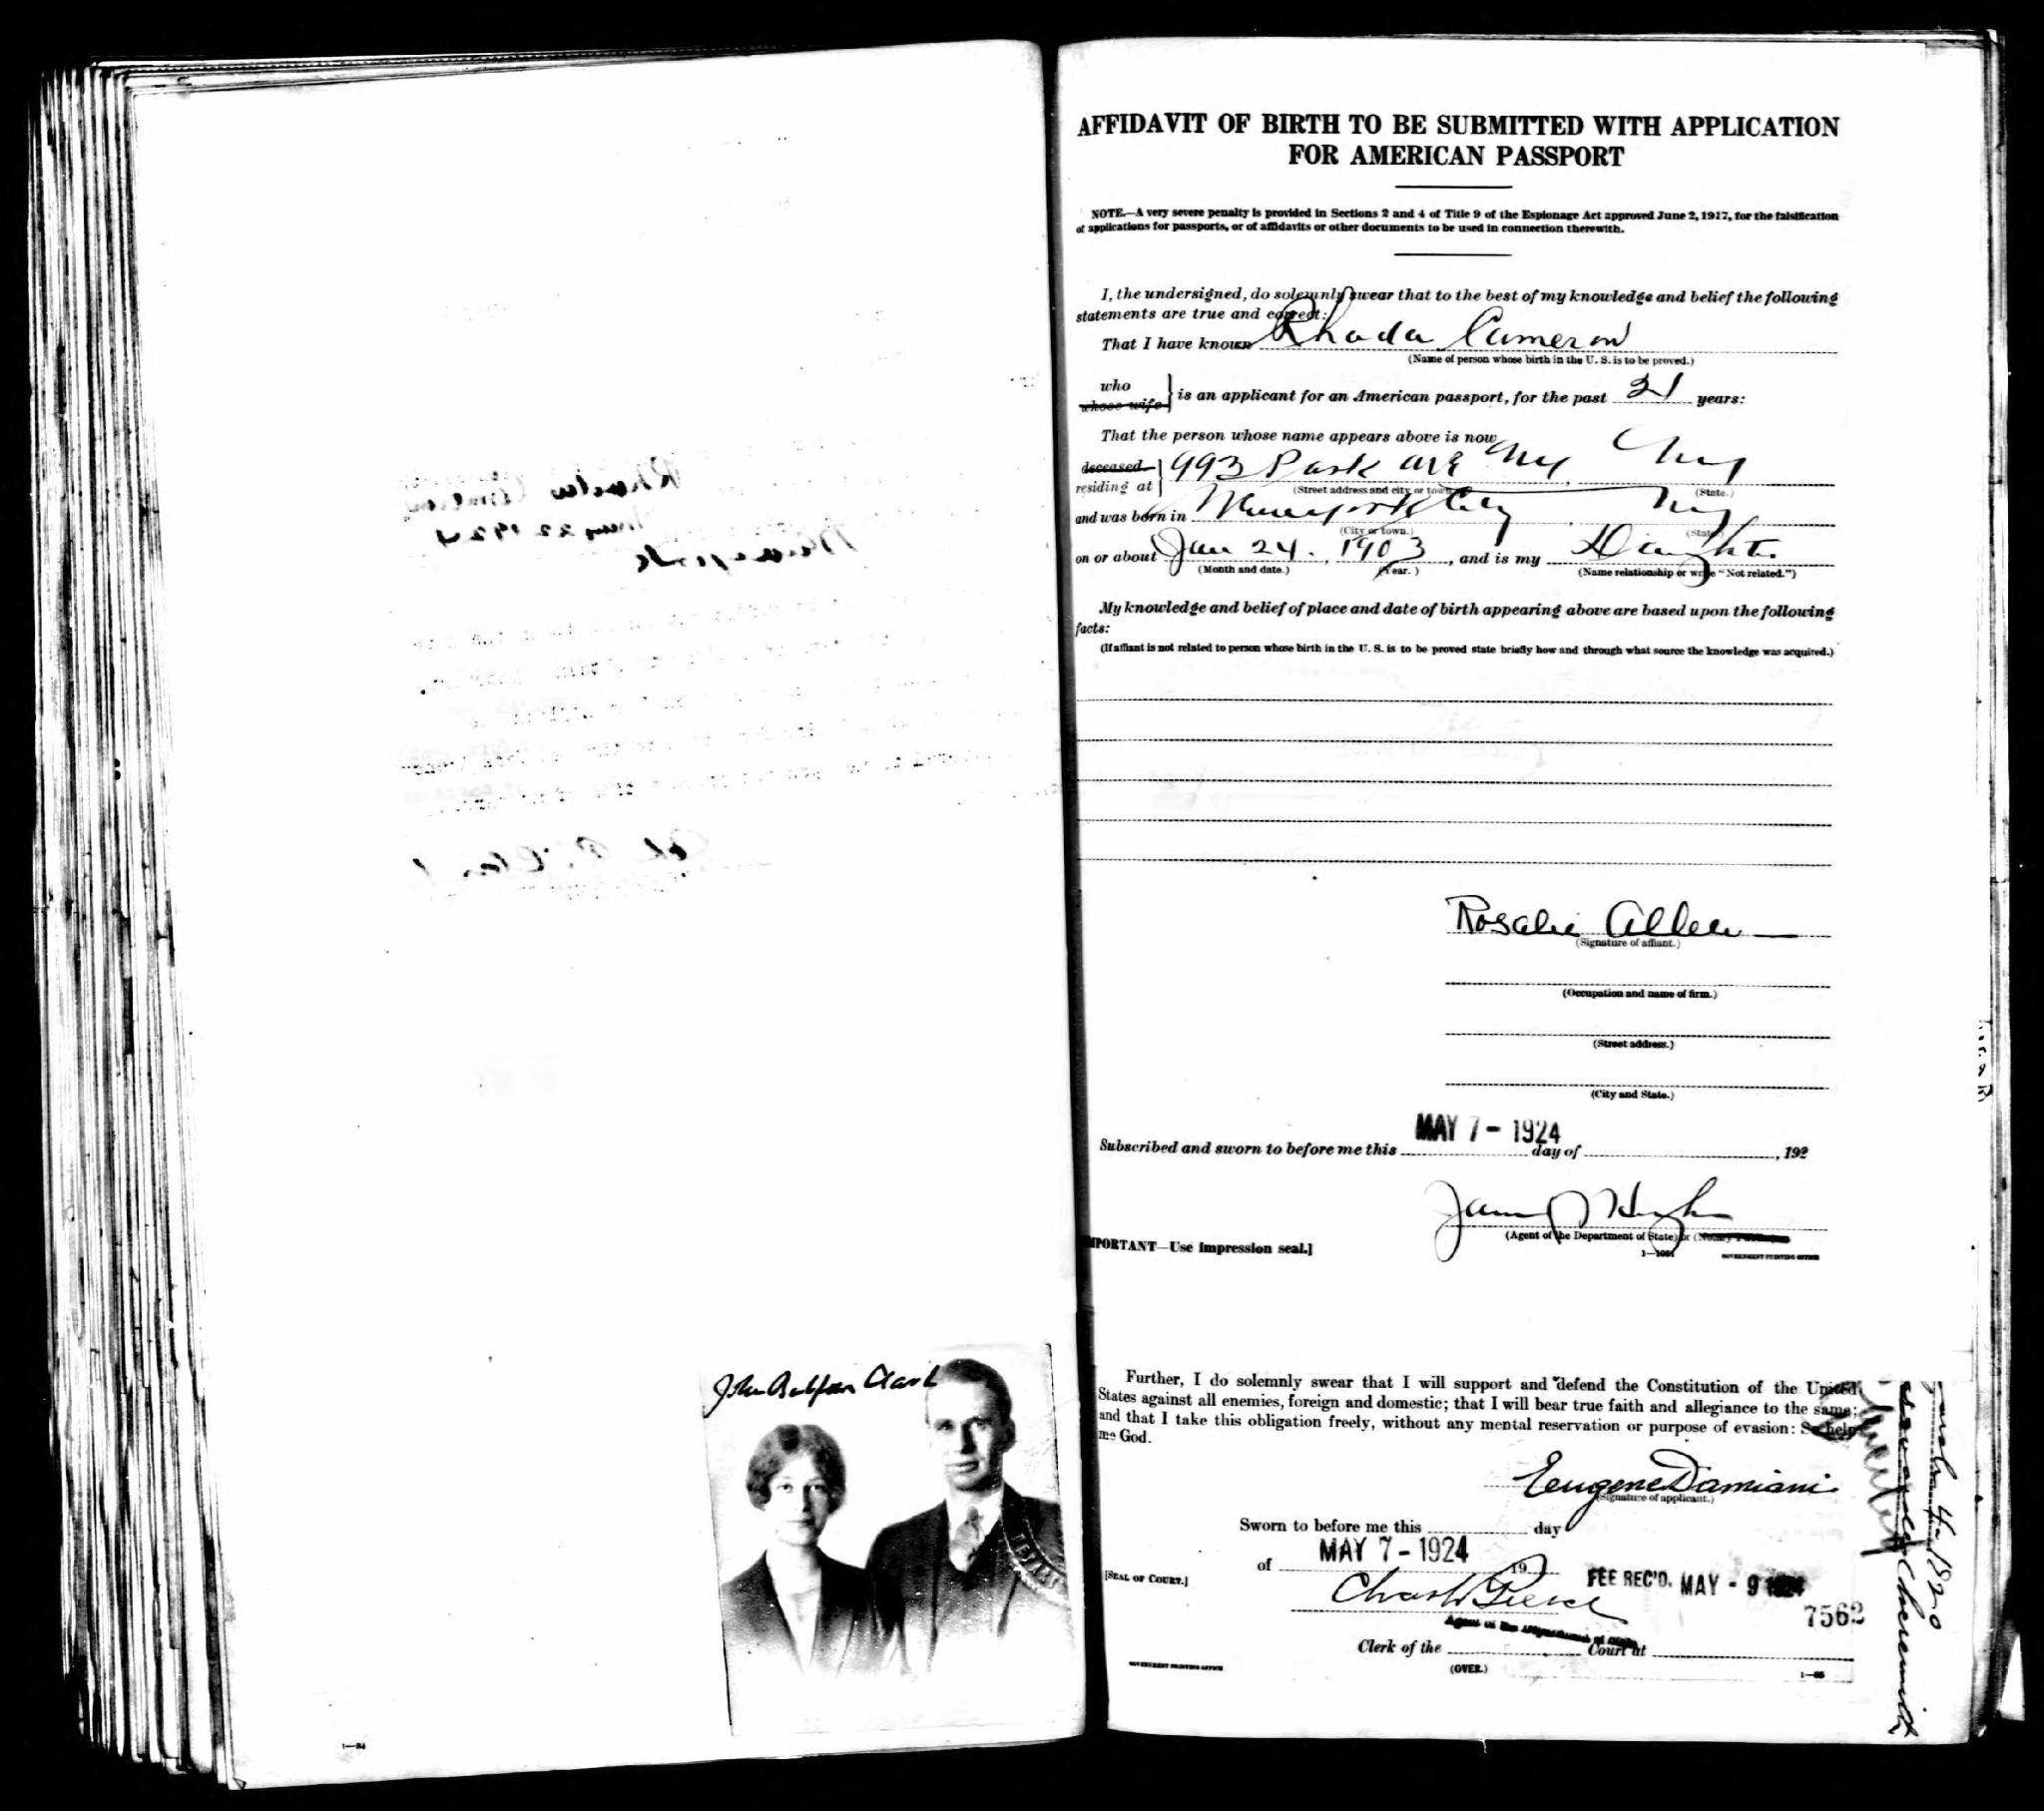 John Balfour Clark
1—84
AFFIDAVIT OF BIRTH TO BE SUBMITTED WITH APPLICATION
FOR AMERICAN PASSPORT
NOTE.—A very severe penalty is provided in Sections 2 and 4 of Title 9 of the Espionage Act approved June 2, 1917, for the falsification
of applications for passports, or of affidavits or other documents to be used in connection therewith.
I, the undersigned, do solemnly swear that to the best of my knowledge and belief the following
statements are true and correct:
That I have known Rhoda Cameron
(Name of person whose birth in the U. S. is to be proved.)
who
whose wife } is an applicant for an American passport, for the past 21 years:
That the person whose name appears above is now
deceased
residing at } 993 Park ave NY, NY
(Street address and city or town.) (State.)
and was born in New York City, NY
(City or town.) (State.)
on or about Jan 24, 1903, and is my Daughter
(Month and date.) (Year.) (Name relationship or write "Not related.")
My knowledge and belief of place and date of birth appearing above are based upon the following
facts:
(If affiant is not related to person whose birth in the U. S. is to be proved state briefly how and through what source the knowledge was acquired.)
Rosalie Allen
(Signature of affiant.)
(Occupation and name of firm.)
(Street address.)
(City and State.)
MAY 7 - 1924
Subscribed and sworn to before me this day of , 192
James J Hughes
(Agent of the Department of State) or (Notary Public)
IMPORTANT—Use impression seal.]
GOVERNMENT PRINTING OFFICE
Further, I do solemnly swear that I will support and defend the Constitution of the United
States against all enemies, foreign and domestic; that I will bear true faith and allegiance to the same;
and that I take this obligation freely, without any mental reservation or purpose of evasion: So help
me God.
Eugene Damiani
(Signature of applicant.)
Sworn to before me this day
of MAY 7 - 1924 19
[SEAL OF COURT.]
FEE REC'D. MAY - 9 1924
7562
Agent of the Department of State
Clerk of the Court at
(OVER.)
GOVERNMENT PRINTING OFFICE
1—65